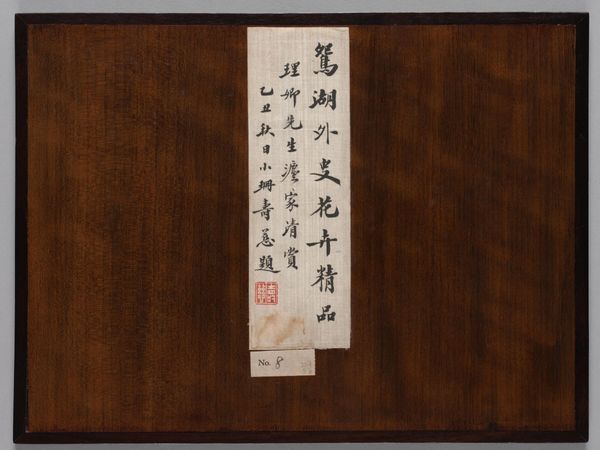 鴛湖外史花卉精品
理卿先生灋家清賞
乙丑秋日小珊壽慈題
No. 8